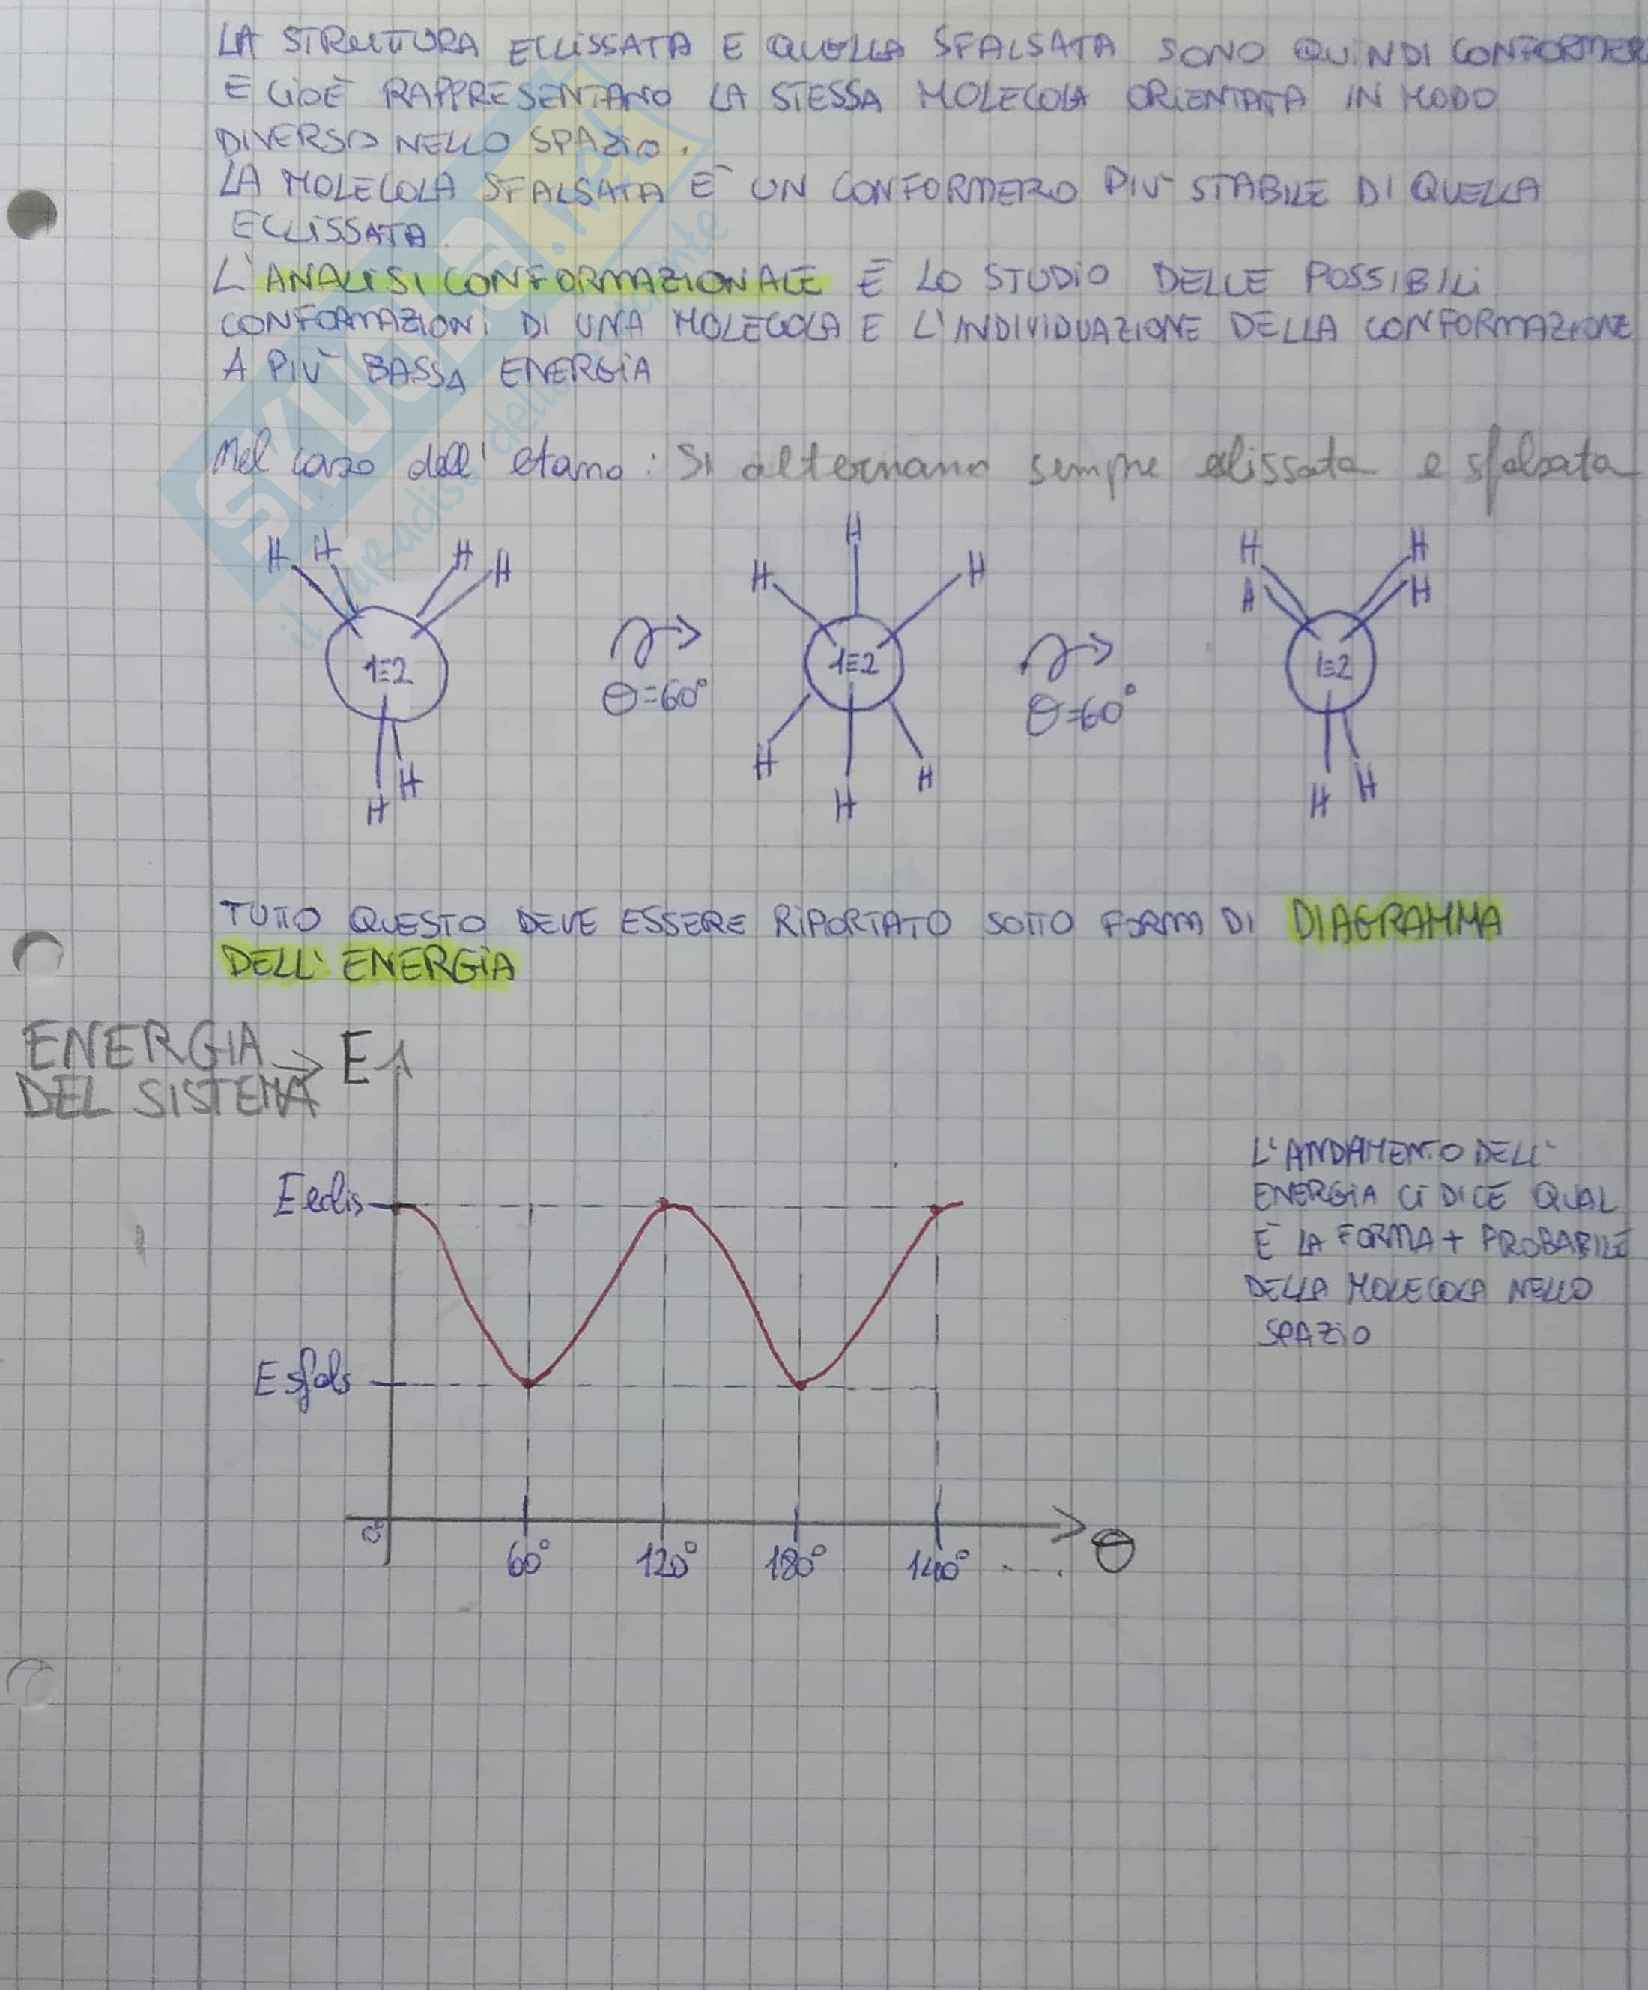 LA STRUTTURA ECLISSATA E QUELLA SFALSATA SONO QUINDI CONFORMERI
E CIOÈ RAPPRESENTANO LA STESSA MOLECOLA ORIENTATA IN MODO
DIVERSO NELLO SPAZIO.
LA MOLECOLA SFALSATA È UN CONFORMERO PIÙ STABILE DI QUELLA
ECLISSATA.
L'ANALISI CONFORMAZIONALE È LO STUDIO DELLE POSSIBILI
CONFORMAZIONI DI UNA MOLECOLA E L'INDIVIDUAZIONE DELLA CONFORMAZIONE
A PIÙ BASSA ENERGIA
Nel caso dell'etano: Si alternano sempre eclissata e sfalsata
H H H H
1≡2
H H
θ=60°
H H H
1≡2
H H H
θ=60°
H H
H H
1≡2
H H
TUTTO QUESTO DEVE ESSERE RIPORTATO SOTTO FORMA DI DIAGRAMMA
DELL'ENERGIA
ENERGIA → E
DEL SISTEMA
E eclis
E sfals
60° 120° 180° 140° ....
θ
L'ANDAMENTO DELL'
ENERGIA CI DICE QUAL
È LA FORMA + PROBABILE
DELLA MOLECOLA NELLO
SPAZIO
SKUOLA.net